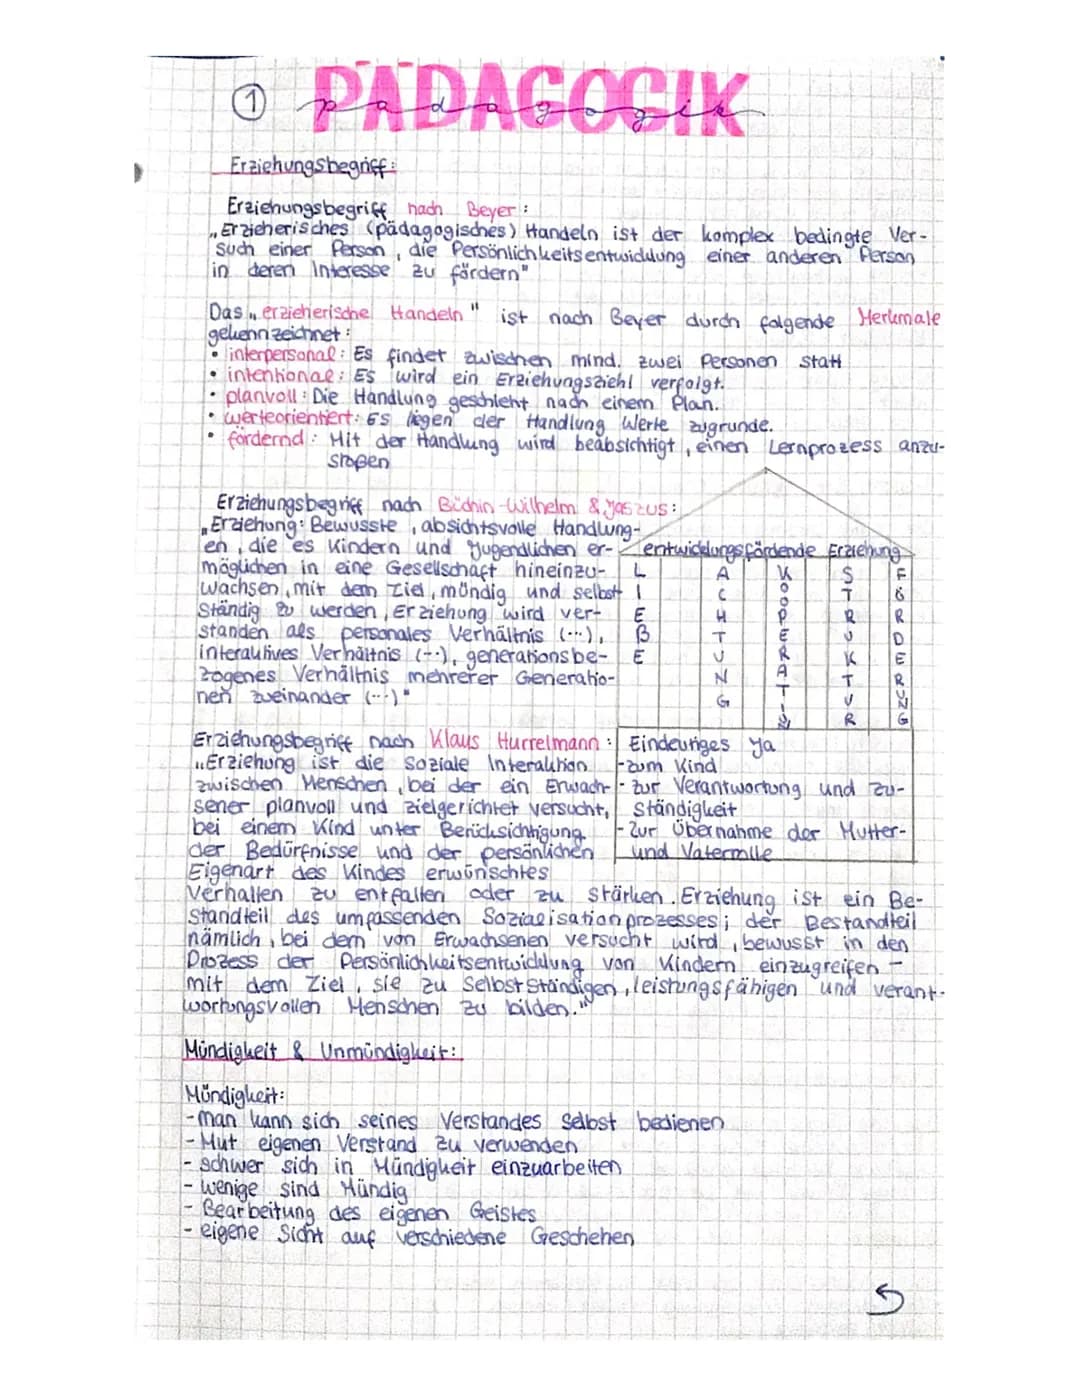 ① PÄDAGOGIK
pädagogik
Erziehungsbegriff:
Erziehungsbegriff nach Beyer:
„Erzieherisches (pädagogisches) Handeln ist der komplex bedingte Ver-
such einer Person, die Persönlichkeitsentwicklung einer anderen Person
in deren Interesse zu fördern"
Das „erzieherische Handeln" ist nach Beyer durch folgende Merkmale
gekennzeichnet:
• interpersonal: Es findet zwischen mind. zwei Personen statt
• intentional: Es wird ein Erziehungsziehl verfolgt.
• planvoll: Die Handlung geschieht nach einem Plan.
• werteorientiert: Es liegen der Handlung Werte zugrunde.
• fördernd: Mit der Handlung wird beabsichtigt, einen Lernprozess anzu-
stoßen
Erziehungsbegriff nach Büchin-Wilhelm & Jaszus:
„Erziehung: Bewusste, absichtsvolle Handlung-
en, die es Kindern und Jugendlichen er-
möglichen in eine Gesellschaft hineinzu-
wachsen, mit dem Ziel, mündig und selbst
ständig zu werden, Erziehung wird ver-
standen als personales Verhältnis (...),
interaktives Verhältnis (...), generationsbe-
zogenes Verhältnis mehrerer Generatio-
nen zueinander (...)"
entwicklungsfördende Erziehung
LIEBE
ACHTUNG
KOOPERATION
STRUKTUR
FÖRDERUNG
Eindeutiges Ja
-zum Kind
-zur Verantwortung und Zu-
ständigkeit
-Zur Übernahme der Mutter-
und Vaterrolle
Erziehungsbegriff nach Klaus Hurrelmann:
„Erziehung ist die soziale Interaktion
zwischen Menschen, bei der ein Erwach-
sener planvoll und zielgerichtet versucht,
bei einem Kind unter Berücksichtigung
der Bedürfnisse und der persönlichen
Eigenart des Kindes erwünschtes
Verhalten zu entfalten oder zu stärken. Erziehung ist ein Be-
standteil des umpassenden Sozialisationprozesses; der Bestandteil
nämlich, bei dem von Erwachsenen versucht wird, bewusst in den
Prozess der Persönlichkeitsentwicklung von Kindern einzugreifen -
mit dem Ziel, sie zu Selbstständigen, leistungsfähigen und verant-
wortungsvollen Menschen zu bilden."
Mündigkeit & Unmündigkeit:
Mündigkeit:
-man kann sich seines Verstandes selbst bedienen
-Mut eigenen Verstand zu verwenden
- schwer sich in Mündigkeit einzuarbeiten
- wenige sind Mündig
- Bearbeitung des eigenen Geistes
- eigene Sicht auf verschiedene Geschehen